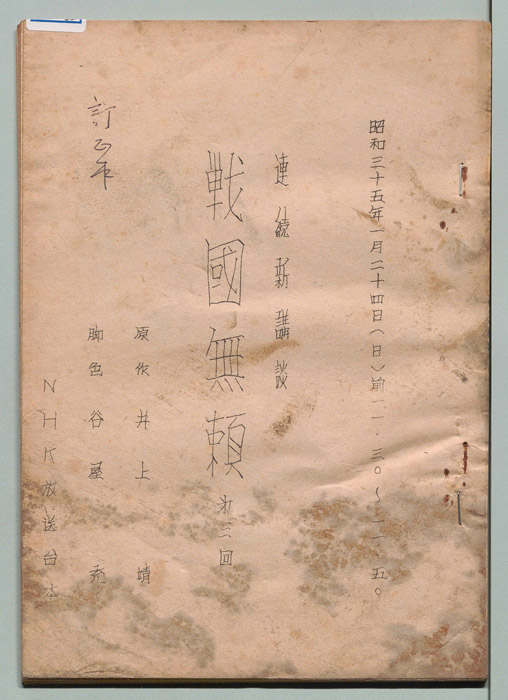 昭和三十五年一月二十四日(日)前一一・三〇〜一一・五〇
連続新講談
戦國無頼 第三回
原作 井上靖
脚色 谷屋充
NHK放送台本
訂正本